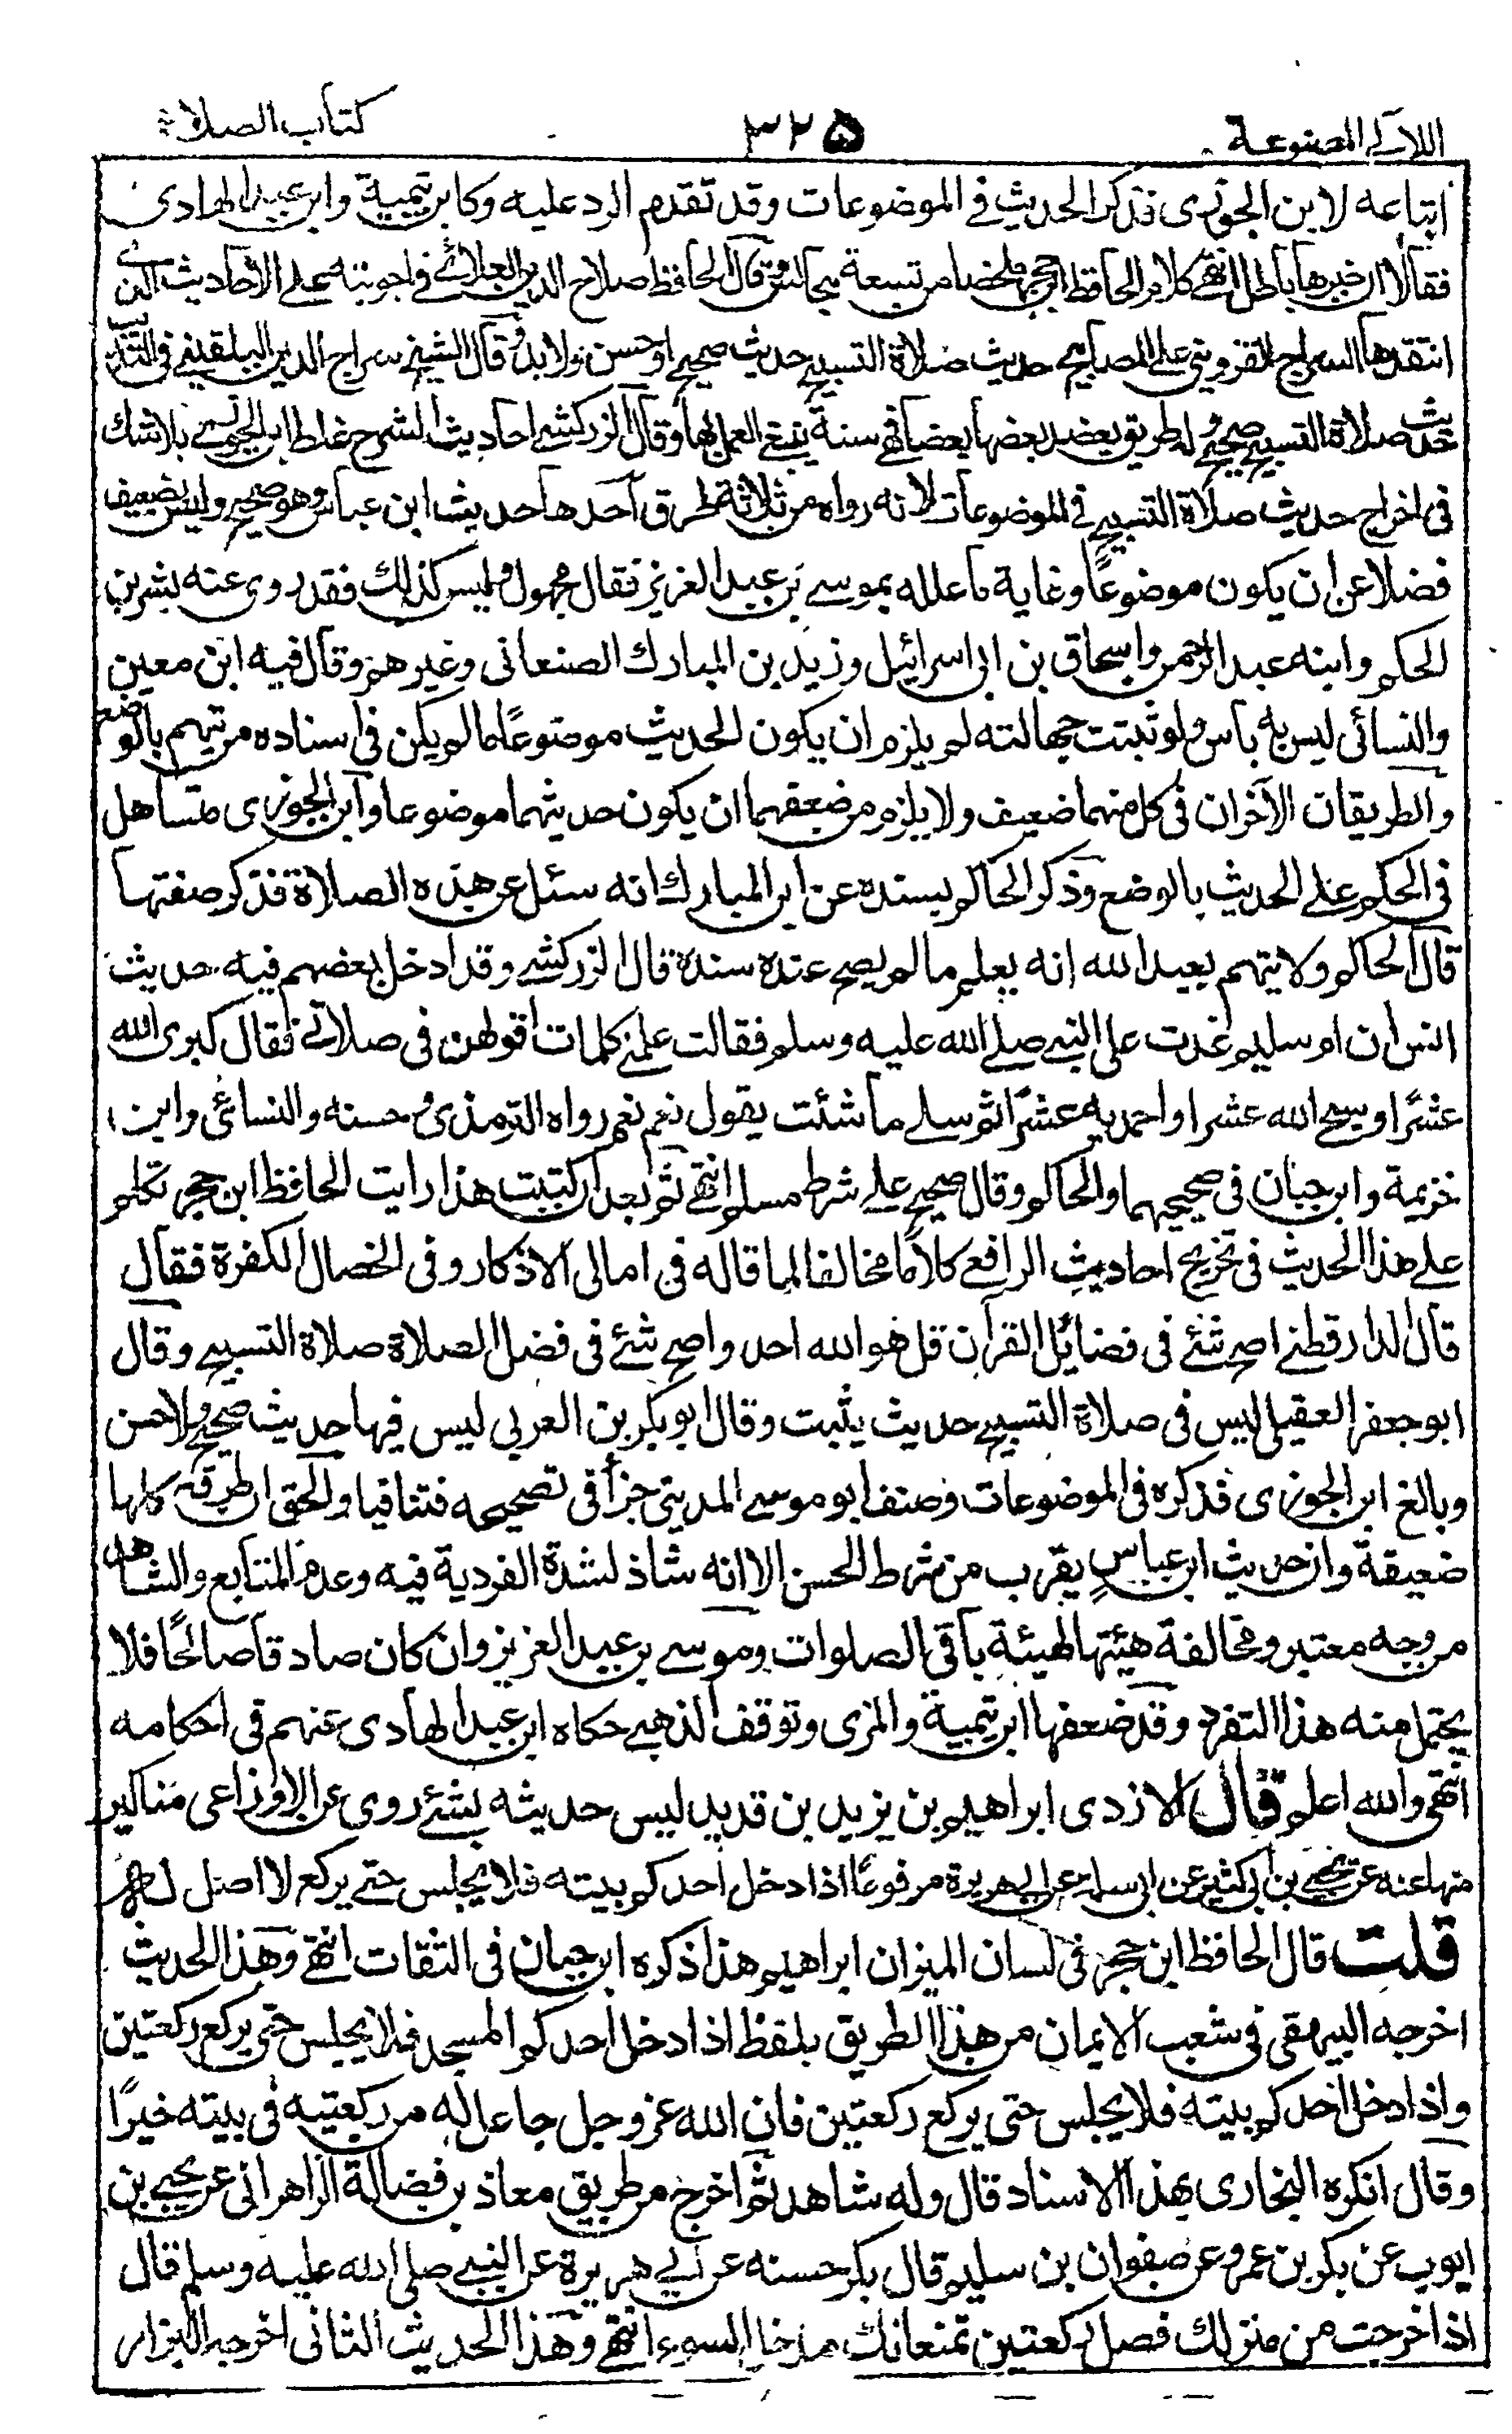 اللآلي المصنوعة ٣٢٥ كتاب الصلاة
اتباعه لابن الجوزى فذكر الحديث فى الموضوعات وقد تقدم الرد عليه وكابن تيمية وابن عبد الهادى
فقالا ان خبرها باطل انتهى كلام الحافظ ابن حجر ملخصا من تسعة مجالس وقال الحافظ صلاح الدين العلائى فى اجوبته على الأحاديث التى
انتقدها السراج القزوينى على المصابيح حديث صلاة التسبيح حديث صحيح او حسن ولا بد وقال الشيخ سراج الدين البلقينى فى التدريب
حديث صلاة التسبيح صحيح وله طريق يعضد بعضها بعضا فهى سنة ينبغى العمل بها وقال الزركشى احاديث الشرح غلط ابن الجوزى بلا شك
فى اخراج حديث صلاة التسبيح فى الموضوعات لانه رواه من ثلاثة طرق احدها حديث ابن عباس وهو صحيح وليس بضعيف
فضلا عن ان يكون موضوعًا وغاية ما علله بموسى بن عبد العزيز فقال مجهول وليس كذلك فقد روى عنه بشر بن
الحكم وابنه عبد الرحمن واسحاق بن ابى اسرائيل وزيد بن المبارك الصنعانى وغيرهم وقال فيه ابن معين
والنسائى ليس به بأس ولو ثبتت جهالته لم يلزم ان يكون الحديث موضوعًا مالم يكن فى اسناده من يتهم بالوضع
والطريقان الآخران فى كل منهما ضعيف ولا يلزم من ضعفهما ان يكون حديثهما موضوعا وابن الجوزى متساهل
فى الحكم على الحديث بالوضع وذكر الحاكم بسنده عن ابن المبارك انه سئل عن هذه الصلاة فذكر صفتها
قال الحاكم ولا يتهم بعبد الله انه يعلم ما لم يصح عنده سنده قال الزركشى وقد ادخل بعضهم فيه حديث
انس ان ام سليم غدت على النبى صلى الله عليه وسلم فقالت علمنى كلمات اقولهن فى صلاتى فقال كبرى الله
عشرًا وسبحى الله عشرا واحمديه عشرًا ثم سلى ما شئت يقول نعم نعم رواه الترمذى وحسنه والنسائى وابن
خزيمة وابن حبان فى صحيحيهما والحاكم وقال صحيح على شرط مسلم انتهى ثم بعد ان كتبت هذا رايت الحافظ ابن حجر تكلم
على هذا الحديث فى تخريج احاديث الرافعى كلامًا مخالفا لما قاله فى امالى الاذكار وفى الخصال المكفرة فقال
قال الدارقطنى اصح شئ فى فضائل القرآن قل هو الله احد واصح شئ فى فضل الصلاة صلاة التسبيح وقال
ابو جعفر العقيلى ليس فى صلاة التسبيح حديث يثبت وقال ابو بكر بن العربى ليس فيها حديث صحيح ولا حسن
وبالغ ابن الجوزى فذكره فى الموضوعات وصنف ابو موسى المدينى جزأ فى تصحيحه فتنافيا والحق ان طرقه كلها
ضعيفة وان حديث ابن عباس يقرب من شرط الحسن الا انه شاذ لشدة الفردية فيه وعدم المتابع والشاهد
من وجه معتبر ومخالفة هيئتها لهيئة باقى الصلوات وموسى بن عبد العزيز وان كان صادقا صالحًا فلا
يحتمل منه هذا التفرد وقد ضعفها ابن تيمية والمزى وتوقف الذهبى حكاه ابن عبد الهادى عنهم فى احكامه
انتهى والله اعلم قال الازدى ابراهيم بن يزيد بن قديد ليس حديثه بشئ روى عن الاوزاعى مناكير
منها عنه عن يحيى بن ابى كثير عن ابى سلمة عن ابى هريرة مرفوعًا اذا دخل احدكم بيته فلا يجلس حتى يركع لا اصل له
قلت قال الحافظ ابن حجر فى لسان الميزان ابراهيم هذا ذكره ابن حبان فى الثقات انتهى وهذا الحديث
اخرجه البيهقى فى شعب الايمان من هذا الطريق بلفظ اذا دخل احدكم المسجد فلا يجلس حتى يركع ركعتين
واذا دخل احدكم بيته فلا يجلس حتى يركع ركعتين فان الله عز وجل جاعل له من ركعتيه فى بيته خيرًا
وقال انكره البخارى بهذا الاسناد قال وله شاهد ثم اخرج من طريق معاذ بن فضالة الزاهرانى عن يحيى بن
ايوب عن بكر بن عمرو عن صفوان بن سليم قال بكر حسنه عن ابى هريرة عن النبى صلى الله عليه وسلم قال
اذا خرجت من منزلك فصل ركعتين تمنعانك مدخل السوء انتهى وهذا الحديث الثانى اخرجه البزار